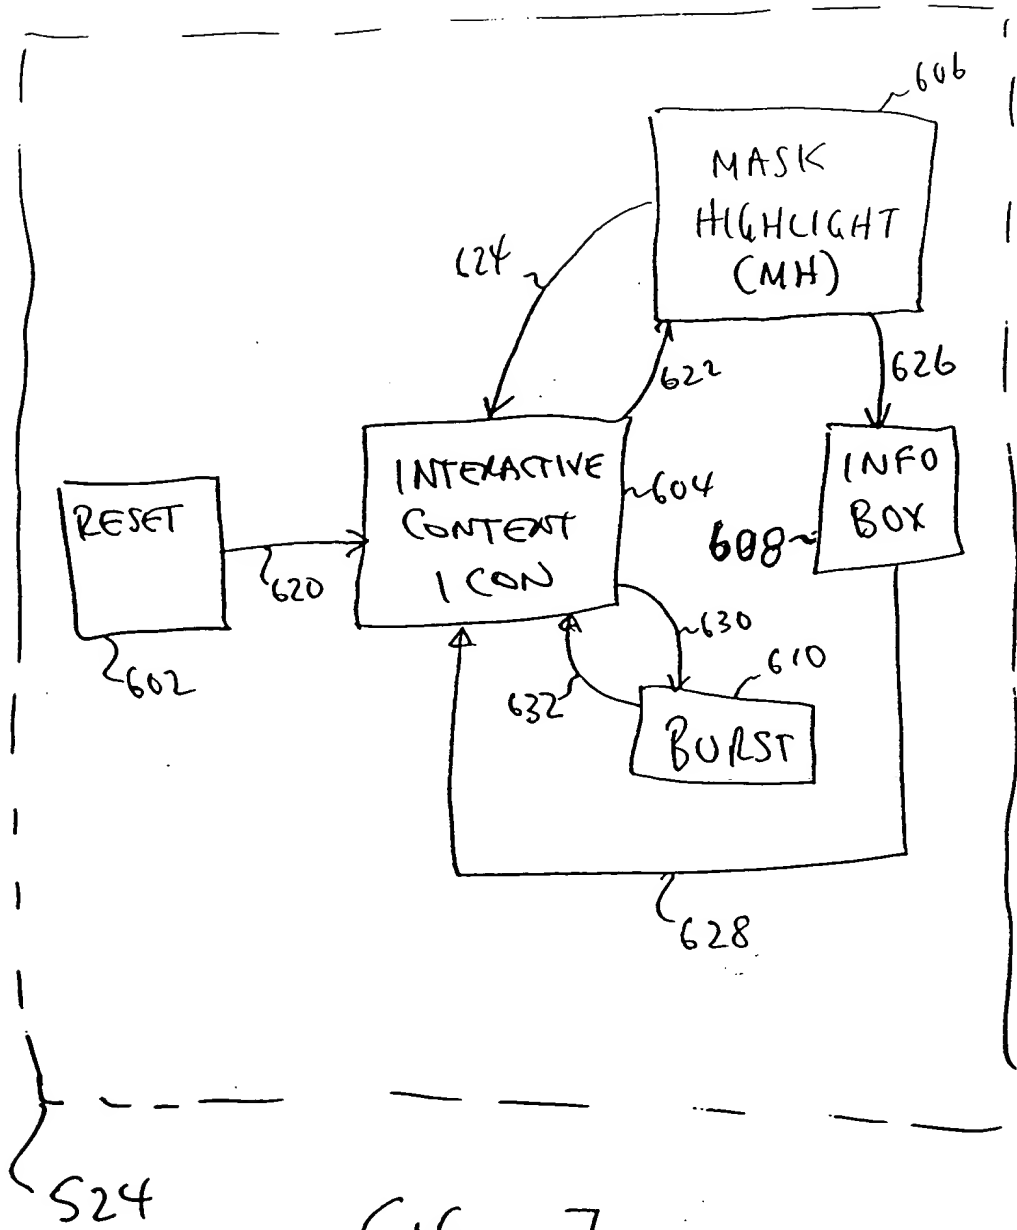 606
MASK
HIGHLIGHT
(MH)
624
622
626
INTERACTIVE
CONTENT
ICON
604
INFO
BOX
608
RESET
620
602
630
610
632
BURST
628
524
FIG. 7